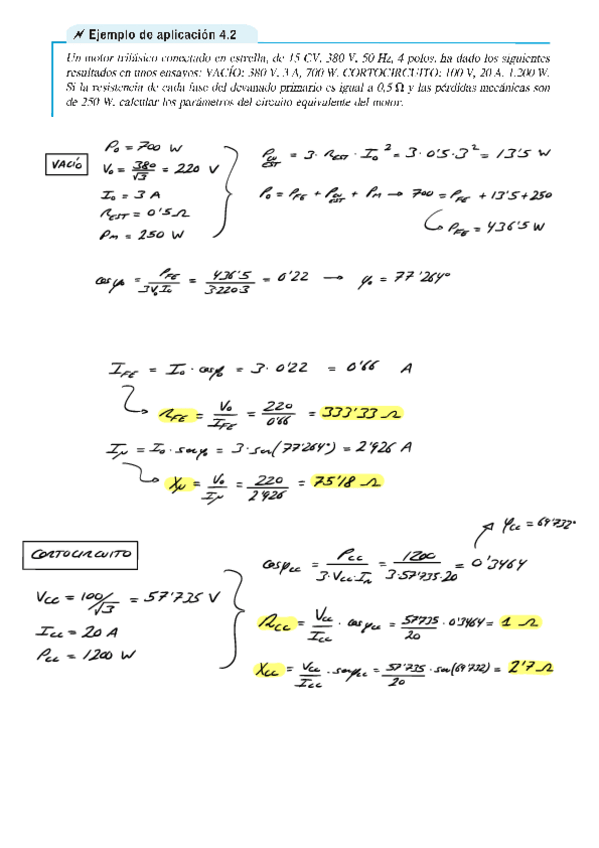 Ejemplo de aplicación 4.2
Un motor trifásico conectado en estrella, de 15 CV, 380 V, 50 Hz, 4 polos, ha dado los siguientes
resultados en unos ensayos: VACÍO: 380 V, 3 A, 700 W. CORTOCIRCUITO: 100 V, 20 A, 1.200 W.
Si la resistencia de cada fase del devanado primario es igual a 0,5 Ω y las pérdidas mecánicas son
de 250 W, calcular los parámetros del circuito equivalente del motor.
VACIÓ
P₀ = 700 W
V₀ = 380/√3 = 220 V
I₀ = 3 A
R_EST = 0'5 Ω
P_M = 250 W
P_CU EST = 3 · R_EST · I₀² = 3 · 0'5 · 3² = 13'5 W
P₀ = P_FE + P_CU EST + P_M → 700 = P_FE + 13'5 + 250
P_FE = 436'5 W
cos φ₀ = P_FE / 3V₀I₀ = 436'5 / 3·220·3 = 0'22 → φ₀ = 77'264°
I_FE = I₀ · cos φ₀ = 3 · 0'22 = 0'66 A
R_FE = V₀ / I_FE = 220 / 0'66 = 333'33 Ω
I_μ = I₀ · sen φ₀ = 3 · sen(77'264°) = 2'926 A
X_μ = V₀ / I_μ = 220 / 2'926 = 75'18 Ω
φcc = 69'732°
CORTOCIRCUITO
Vcc = 100/√3 = 57'735 V
Icc = 20 A
Pcc = 1200 W
cos φcc = Pcc / 3·Vcc·In = 1200 / 3·57'735·20 = 0'3464
Rcc = Vcc / Icc · cos φcc = 57735 / 20 · 0'3464 = 1 Ω
Xcc = Vcc / Icc · sen φcc = 57'735 / 20 · sen(69'732) = 2'7 Ω